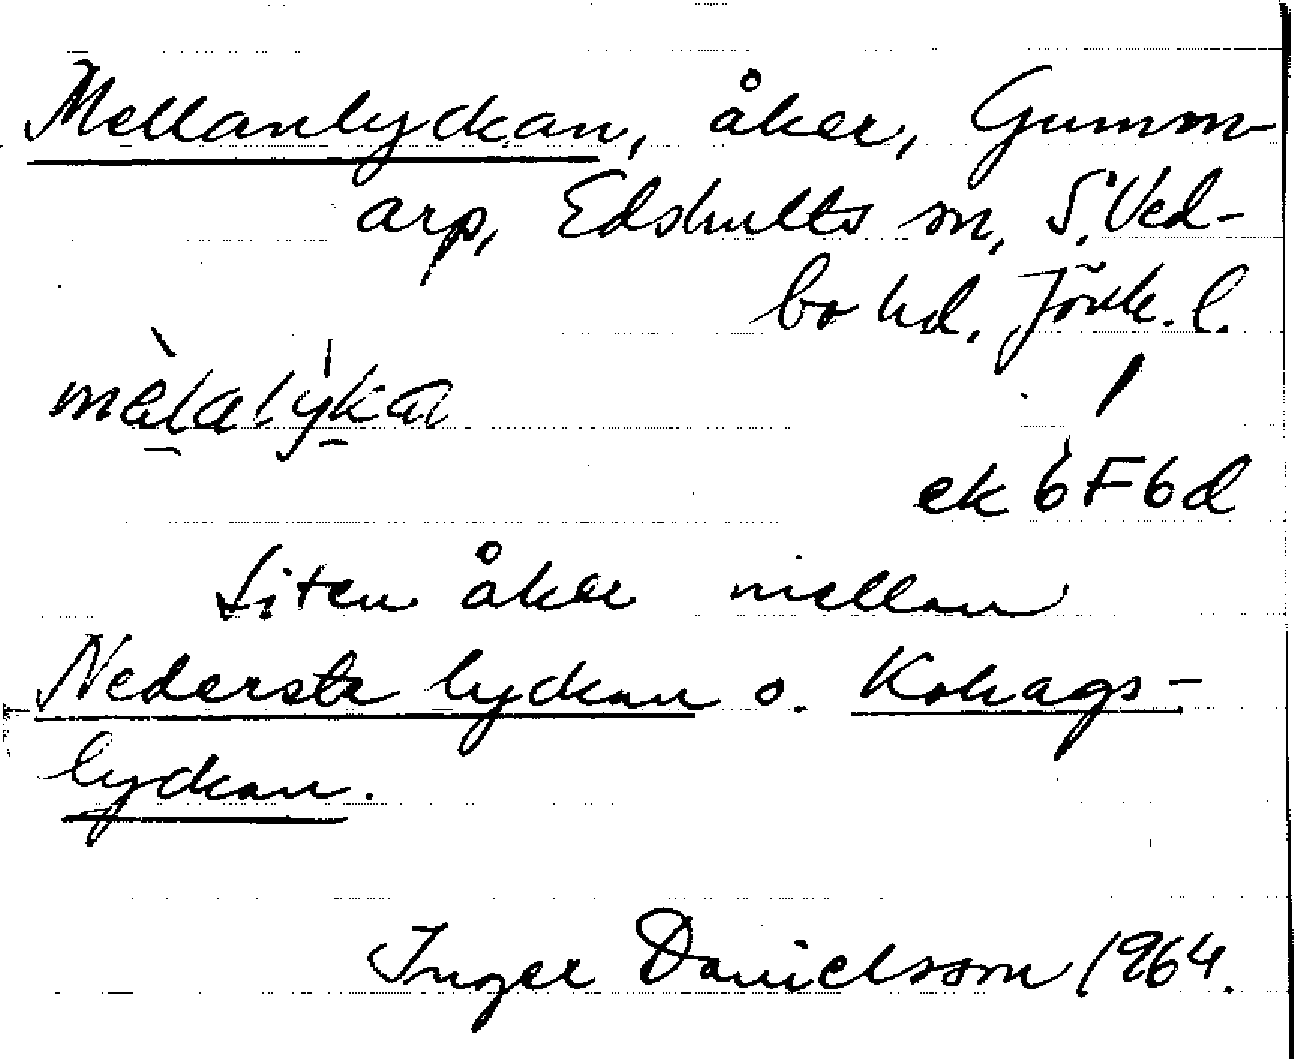 Mellanlyckan, åker, Gumm-
arp, Edshults sn, S. Ved-
bo hd. Jönk. l.
mèlalýka
ek 6F6d
Liten åker mellan
Nedersta lyckan o. Kohags-
lyckan.
Inger Danielsson 1964.